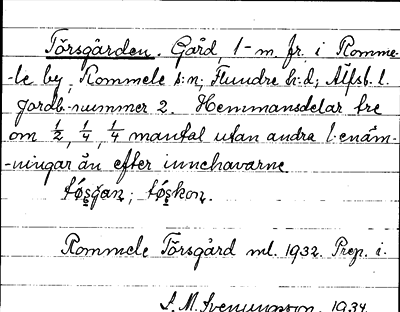 Törsgården. Gård, 1 - m. fr. i Romme-
-le by; Rommele s:n; Flundre h:d; Älfsb. l.
Jordb.-nummer 2. Hemmansdelar tre
om 1/2, 1/4, 1/4 mantal utan andra b:enäm-
-ningar än efter innehavarne
Rommele Törsgård ml. 1932. Prep. i.
S. M. Svenungsson. 1934.